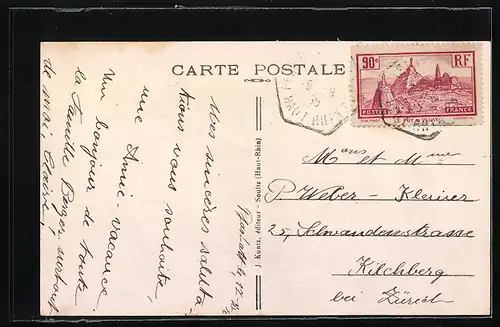 CARTE POSTALE
90c RF
POSTES LE PUY-EN-VELAY FRANCE
Mons et Mme
P. Weber - Kleiner
25, Schwandenstrasse
Kilchberg
bei Zürich
J. Kuntz, éditeur - Soultz (Haut-Rhin)
Mes sincères saluta-
tions vous souhaite,
une Annie vacance
Un bonjour de toute
la famille Berger, surtout
de moi, Louise,